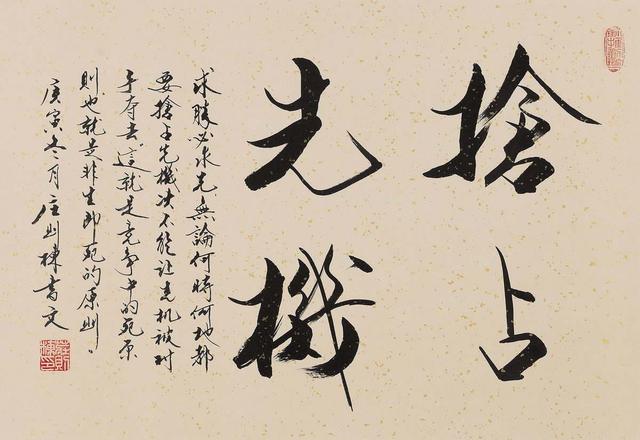 搶占
先機
求勝必求先無論何時何地都
要搶占先機决不能让先机被对
手夺去這就是竞争中的死原
則也就是非生即死的原則
庚寅冬月庄则栋書文